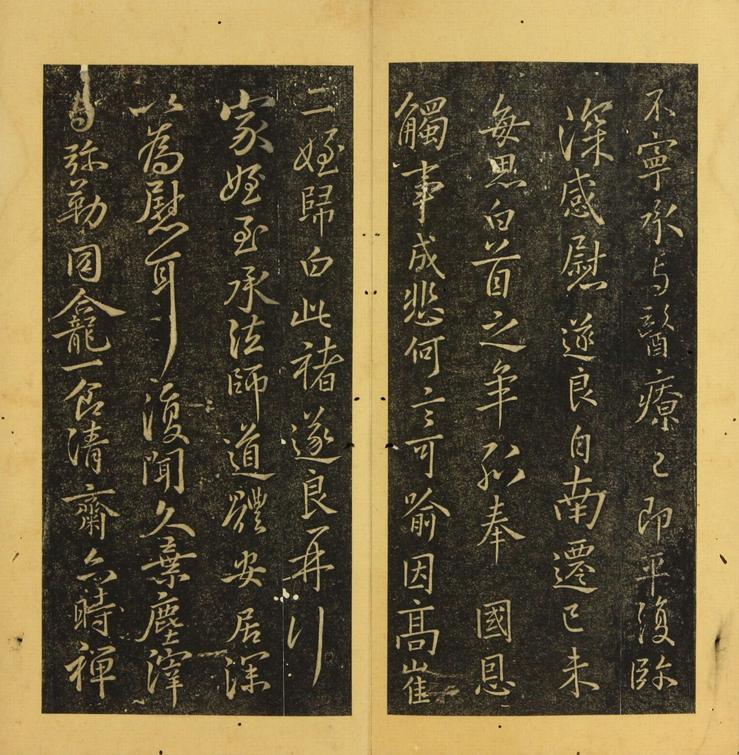 不寧承与醫療已即平復弥
深感慰遂良自南遷已未
每思白首之年孤奉國恩
觸事成悲何言可喻因高崔
二姪歸白此褚遂良再拜
家姪至承法師道體安居深
以為慰耳復聞久棄塵滓
与弥勒同龕一食清齋六時禪